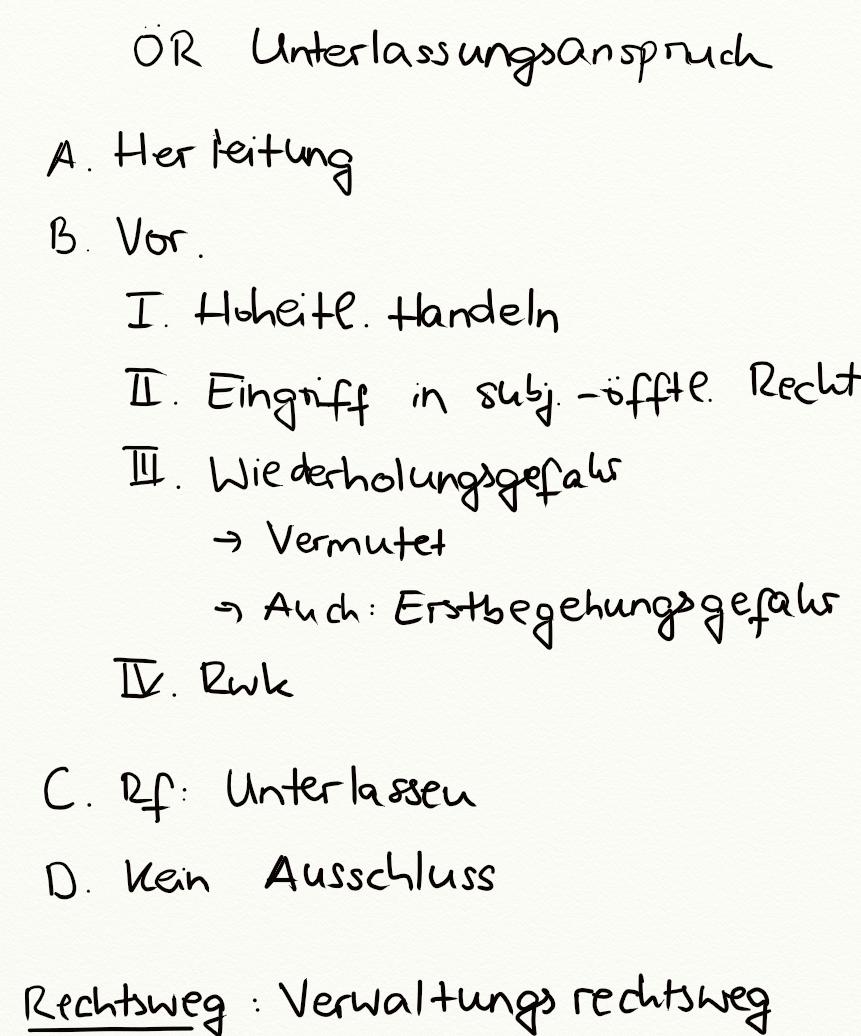 ÖR Unterlassungsanspruch
A. Herleitung
B. Vor.
I. Hoheitl. Handeln
II. Eingriff in subj.-öfftl. Recht
III. Wiederholungsgefahr
→ Vermutet
→ Auch: Erstbegehungsgefahr
IV. Rwk
C. Rf: Unterlassen
D. Kein Ausschluss
Rechtsweg: Verwaltungsrechtsweg